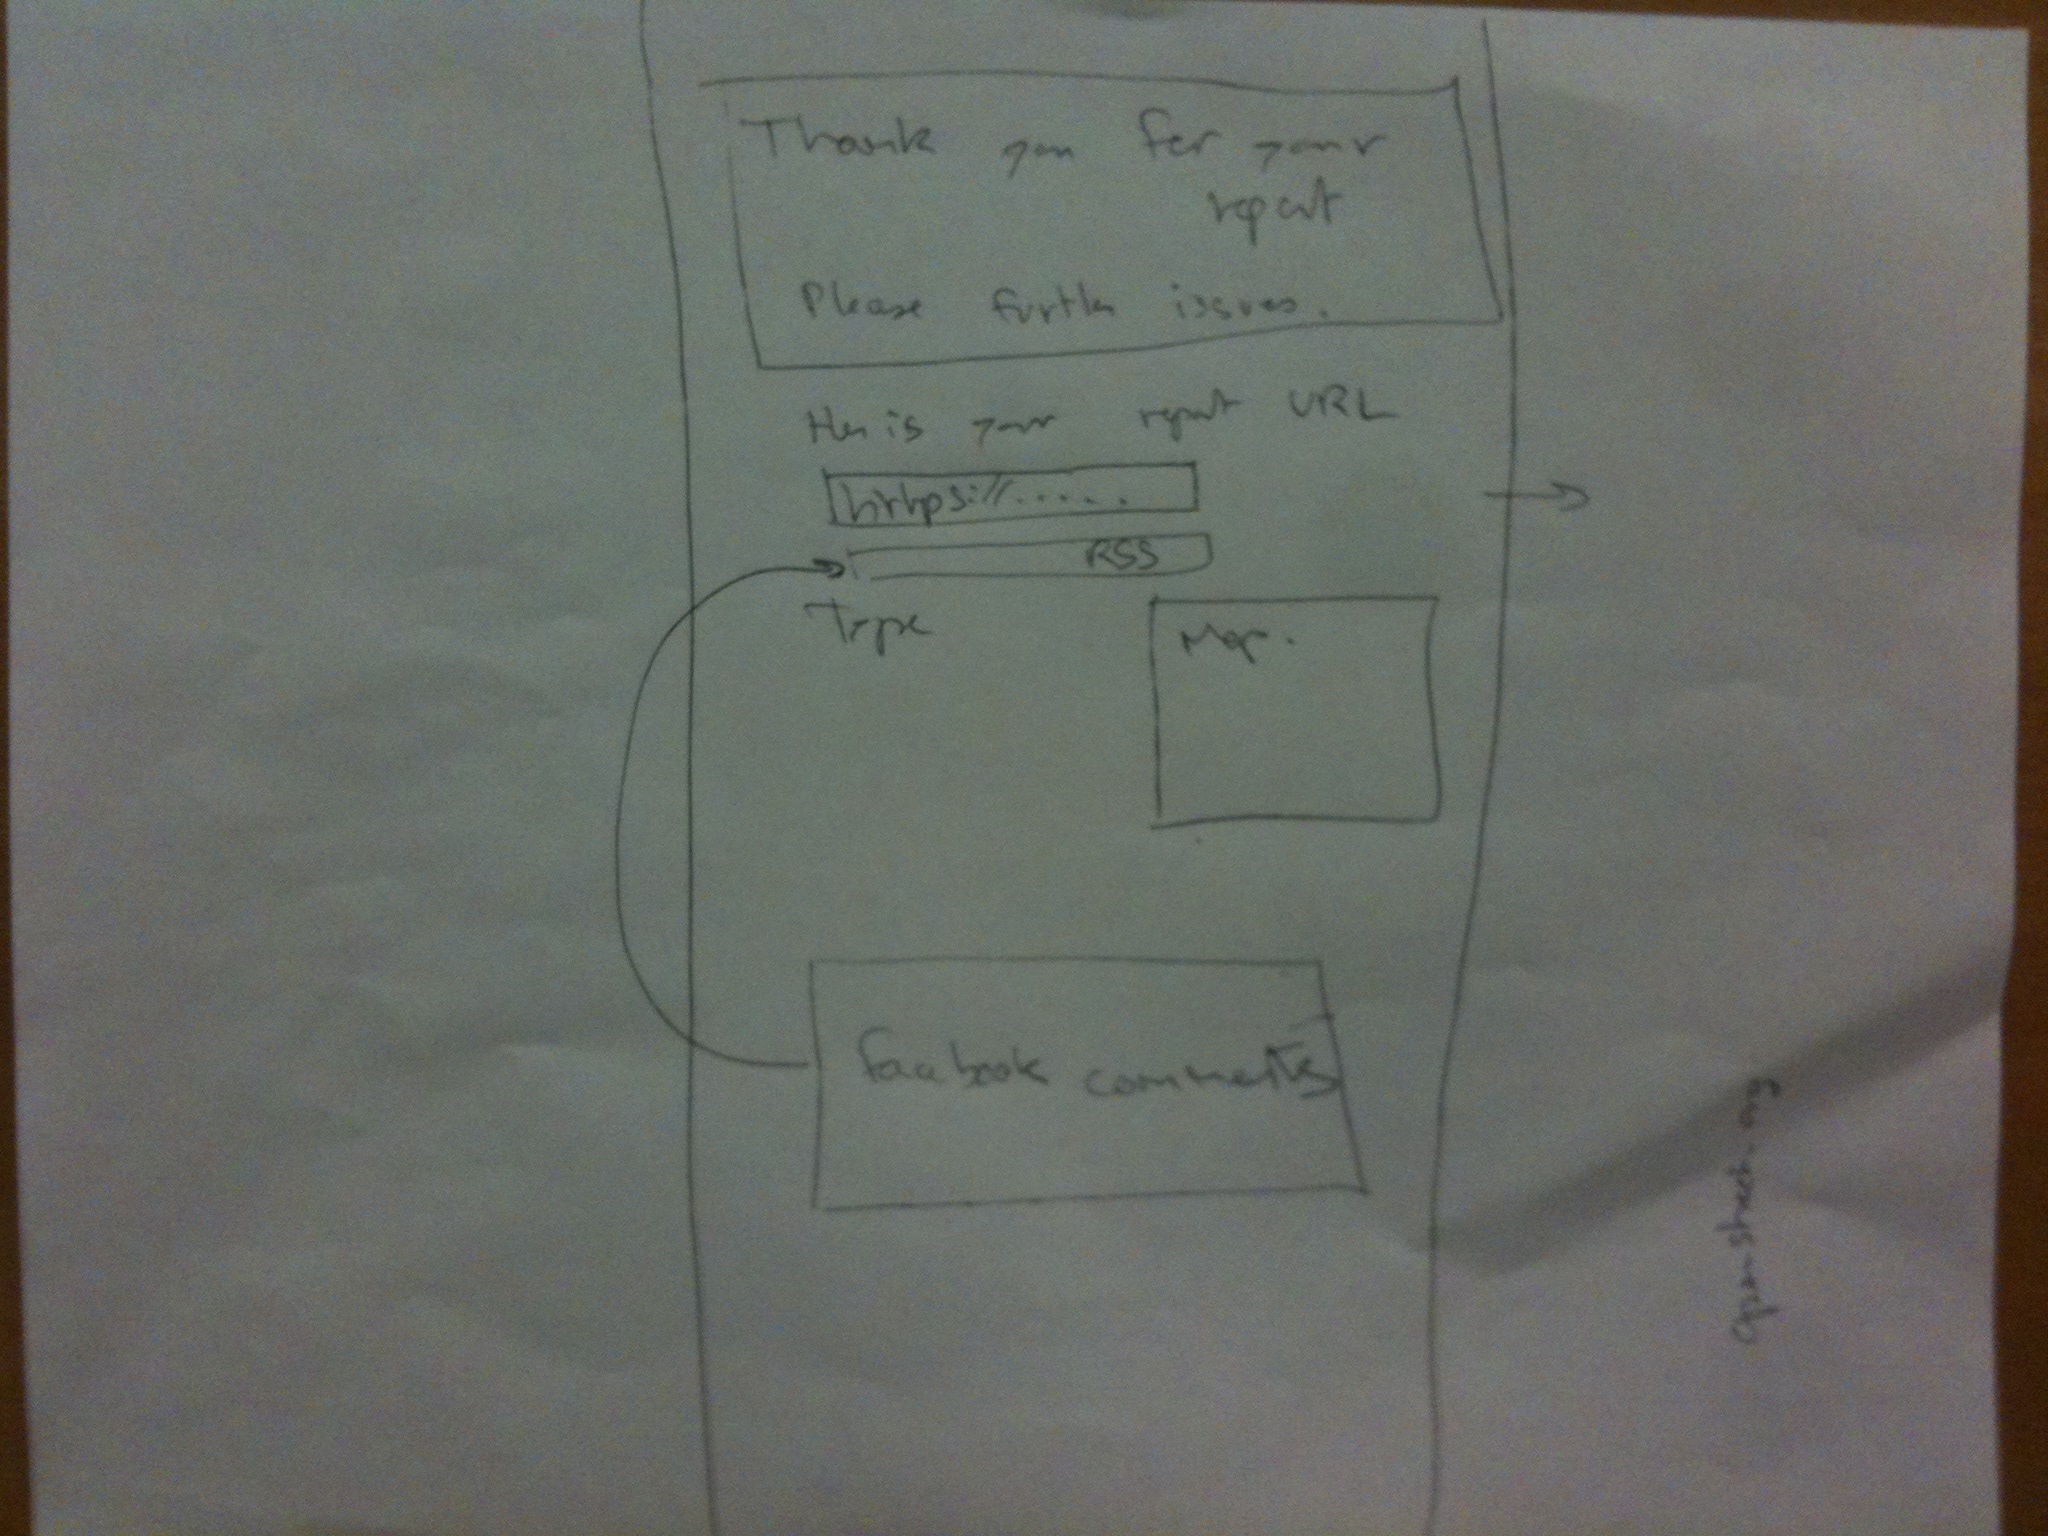 Thank you for your
report
Please further issues.
Here is your report URL
https://......
RSS
Type
Map.
facebook comments